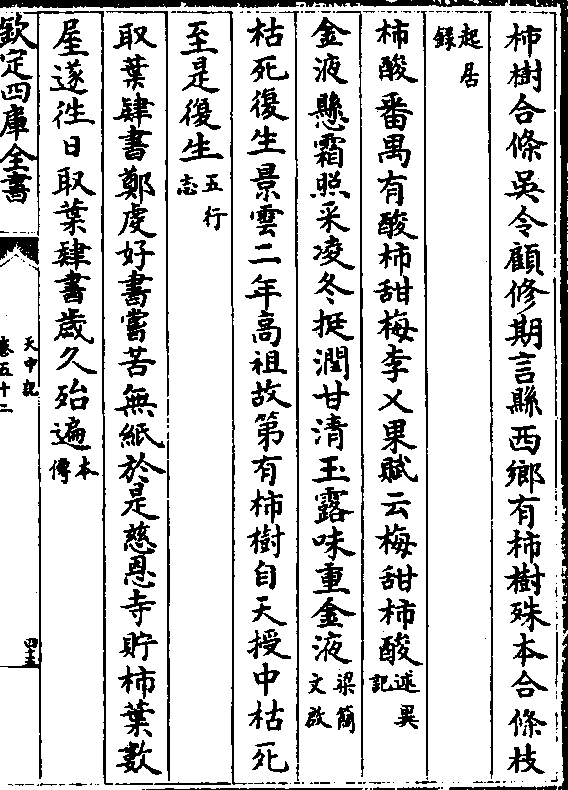 柿樹合條吳令顧修期言縣西鄉有柿樹殊本合條枝
起居
錄
柿酸番禺有酸柿甜梅李乂果賦云梅甜柿酸述異
記
金液懸霜照采凌冬挺潤甘清玉露味重金液梁簡
文啟
枯死復生景雲二年高祖故第有柿樹自天授中枯死
至是復生五行
志
取葉肆書鄭虔好書嘗苦無紙於是慈恩寺貯柿葉數
屋遂徃日取葉肆書歲久殆遍本
傳
欽定四庫全書
天中記
卷五十二
四五